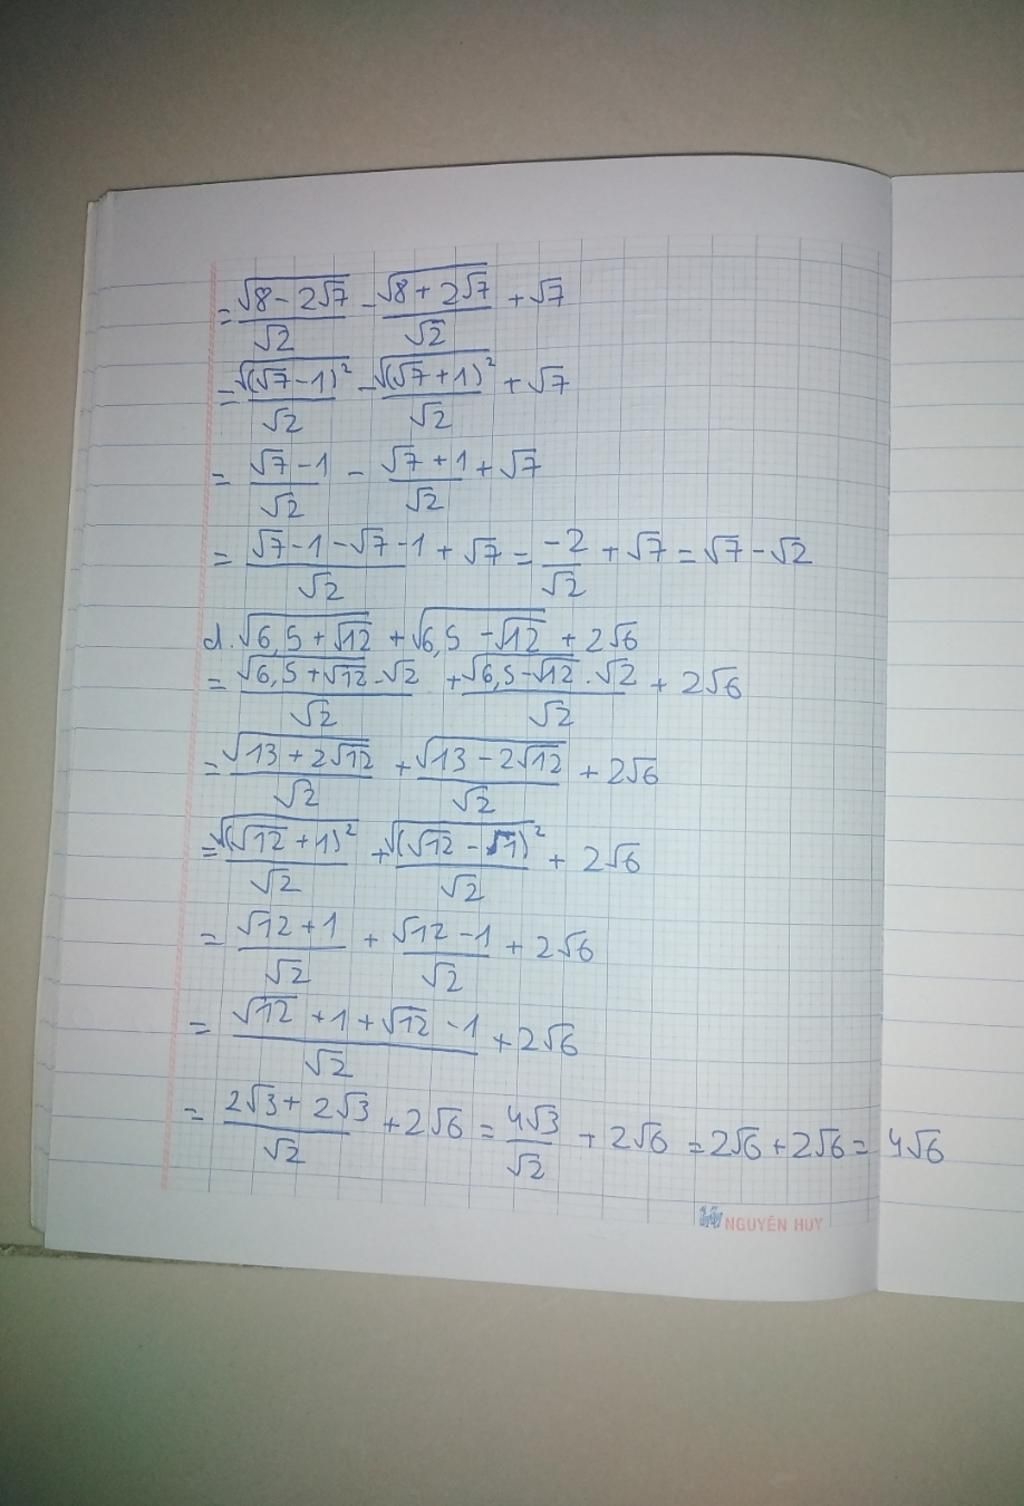 = √(8 - 2√7)/√2 - √(8 + 2√7)/√2 + √7
= √((√7 - 1)²)/√2 - √((√7 + 1)²)/√2 + √7
= (√7 - 1)/√2 - (√7 + 1)/√2 + √7
= (√7 - 1 - √7 - 1)/√2 + √7 = -2/√2 + √7 = √7 - √2
d. √(6,5 + √12) + √(6,5 - √12) + 2√6
= (√(6,5 + √12) . √2)/√2 + (√(6,5 - √12) . √2)/√2 + 2√6
= √(13 + 2√12)/√2 + √(13 - 2√12)/√2 + 2√6
= √((√12 + 1)²)/√2 + √((√12 - √1)²)/√2 + 2√6
= (√12 + 1)/√2 + (√12 - 1)/√2 + 2√6
= (√12 + 1 + √12 - 1)/√2 + 2√6
= (2√3 + 2√3)/√2 + 2√6 = 4√3/√2 + 2√6 = 2√6 + 2√6 = 4√6
NGUYÊN HUY